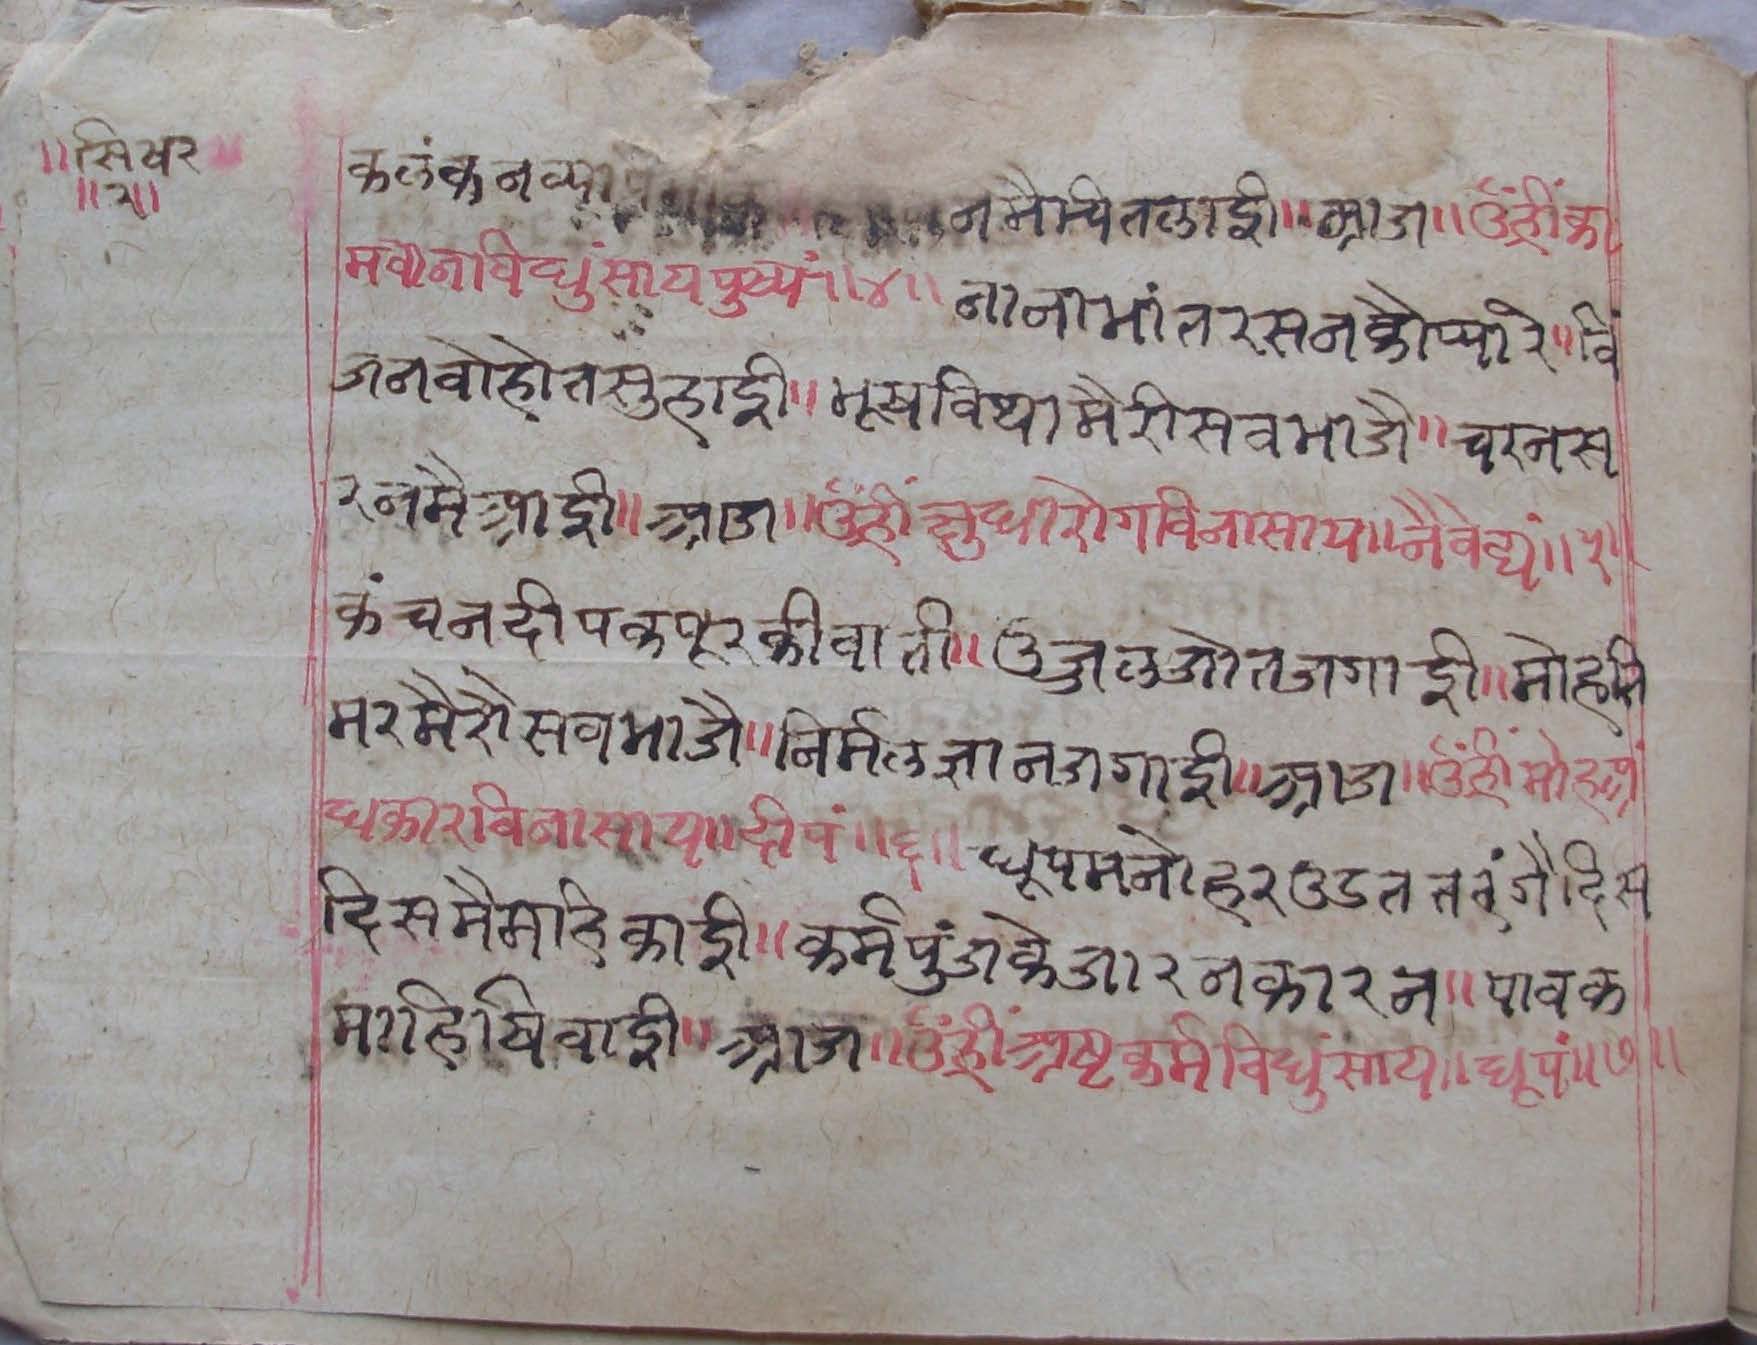 ॥सिषर॥
॥२॥
कलंक न व्या नमै चितलाई॥आज॥उंह्रीं का
मवानविघुंसाय पुष्पं॥४॥ नाना भांत रसन को प्यारे॥विं
जन वोहोत सुहाई॥भूख विथा मैरी सव भाजै॥चरन स
रन मै आई॥आज॥उंह्रीं क्षुधारोगविनासाय॥नैवेद्यं॥५॥
कंचन दीप कपूर की वाती॥उजुल जोत जगाई॥मोह ति
मर मैरो सव भाजै॥निर्मल ज्ञान जगाई॥आज॥उंह्रीं मोहअं
धकारविनासाय॥दीपं॥६॥ धूप मनोहर उडत तरंगै दिस
दिस मै माहिकाई॥कर्म पुंज के जारन कारन॥पावक
माहि षिवाई॥आज॥उंह्रीं अष्टकर्मविघुंसाय॥धूपं॥७॥